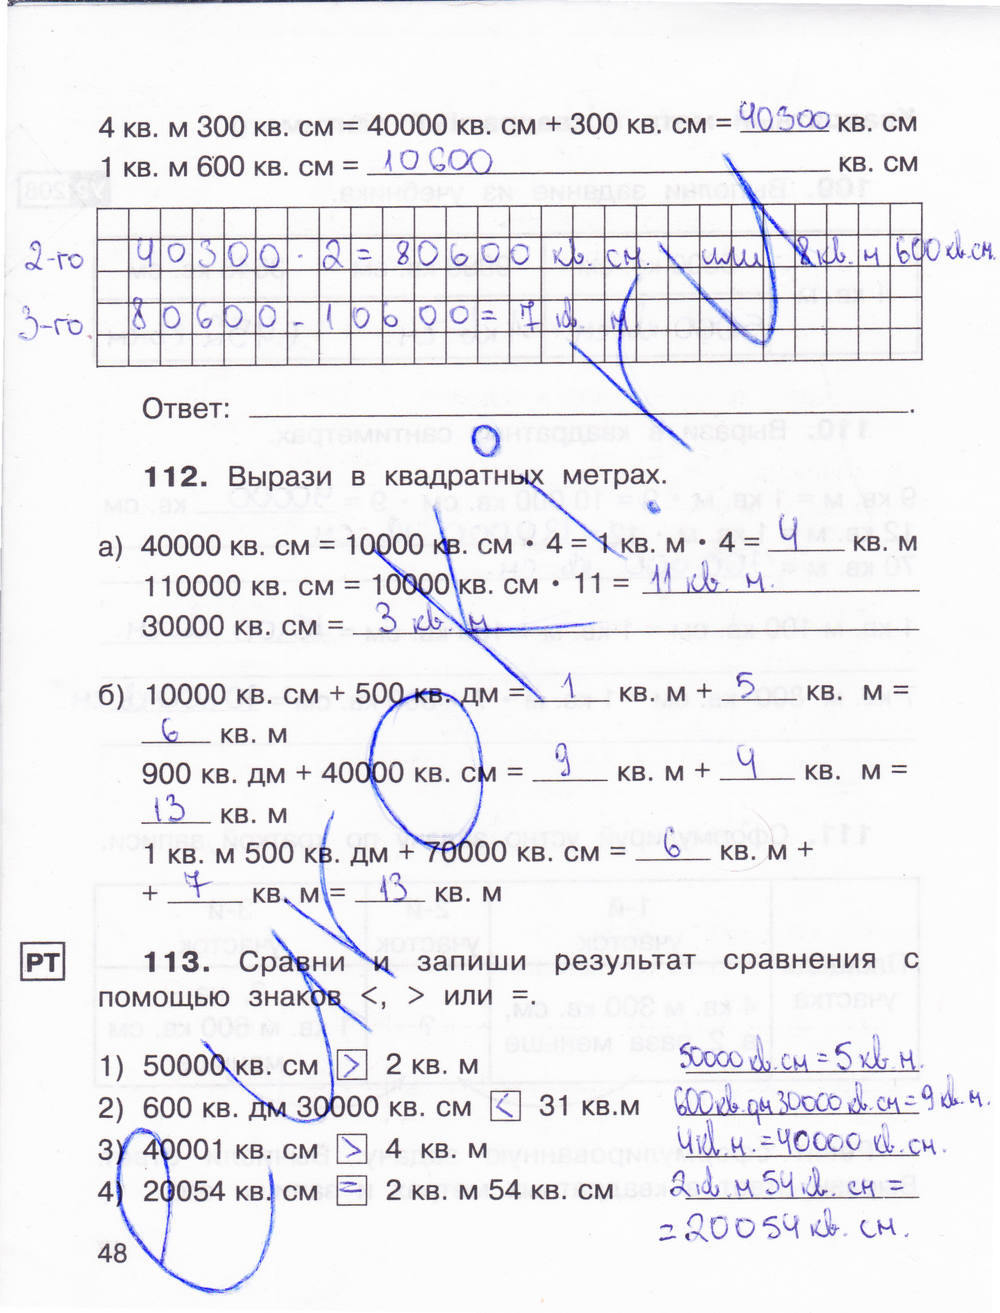 4 кв. м 300 кв. см = 40000 кв. см + 300 кв. см = 40300 кв. см
1 кв. м 600 кв. см = 10600 кв. см
2-го 40300 · 2 = 80600 кв. см или 8 кв. м 600 кв. см.
3-го. 80600 - 10600 = 7 кв. м
Ответ:
112. Вырази в квадратных метрах.
а) 40000 кв. см = 10000 кв. см · 4 = 1 кв. м · 4 = 4 кв. м
110000 кв. см = 10000 кв. см · 11 = 11 кв. м.
30000 кв. см = 3 кв. м
б) 10000 кв. см + 500 кв. дм = 1 кв. м + 5 кв. м =
6 кв. м
900 кв. дм + 40000 кв. см = 9 кв. м + 4 кв. м =
13 кв. м
1 кв. м 500 кв. дм + 70000 кв. см = 6 кв. м +
+ 7 кв. м = 13 кв. м
РТ 113. Сравни и запиши результат сравнения с
помощью знаков <, > или =.
1) 50000 кв. см > 2 кв. м 50000 кв. см = 5 кв. м.
2) 600 кв. дм 30000 кв. см < 31 кв.м 600 кв. дм 30000 кв. см = 9 кв. м.
3) 40001 кв. см > 4 кв. м 4 кв. м = 40000 кв. см.
4) 20054 кв. см = 2 кв. м 54 кв. см 2 кв. м 54 кв. см =
= 20054 кв. см.
48